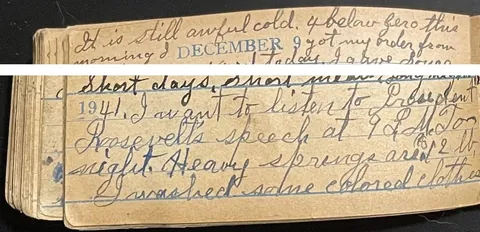 It is still awful cold. 4 below zero this
morning I DECEMBER 9 got my order from
today. I gave
Short days, short
1941. I want to listen to President
Roosevelt's speech at 9 P.M. To
night. Heavy springs are 12 lb
I washed some colored clothes